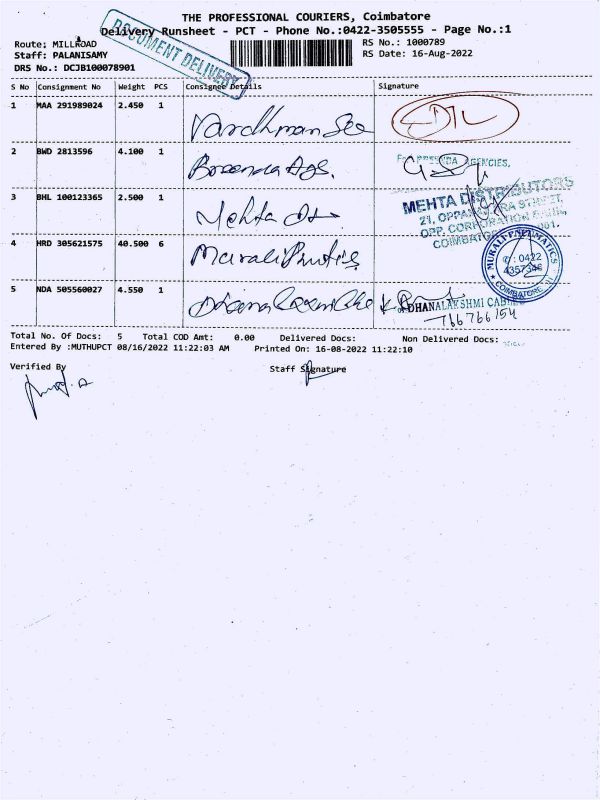 THE PROFESSIONAL COURIERS, Coimbatore
Delivery Runsheet - PCT - Phone No.:0422-3505555 - Page No.:1
DOCUMENT DELIVERY
Route: MILLROAD
Staff: PALANISAMY
DRS No.: DCJB100078901
RS No.: 1000789
RS Date: 16-Aug-2022
S No Consignment No Weight PCS Consignee Details Signature
1 MAA 291989024 2.450 1 Vardhman
2 BWD 2813596 4.100 1 Ags.
AGENCIES,
3 BHL 100123365 2.500 1 Mehta
MEHTA DISTRIBUTORS
21, STREET,
OPP. CORPORATION
COIMBATORE
4 HRD 305621575 40.500 6 Murali
MURALI PNEUMATICS
: 0422
4357346
COIMBATORE
5 NDA 505560027 4.550 1
DHANALAKSHMI
766766154
Total No. Of Docs: 5 Total COD Amt: 0.00 Delivered Docs: Non Delivered Docs:
Entered By :MUTHUPCT 08/16/2022 11:22:03 AM Printed On: 16-08-2022 11:22:10
Verified By Staff Signature